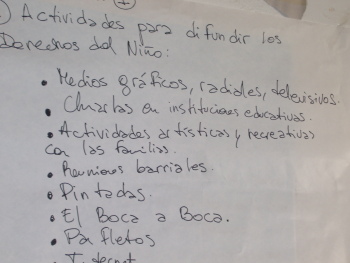 ) Actividades para difundir los
Derechos del Niño:
• Medios gráficos, radiales, televisivos.
• Charlas en instituciones educativas.
• Actividades artísticas y recreativas
con las familias.
• Reuniones barriales.
• Pintadas.
• El Boca a Boca.
• Panfletos
• Internet